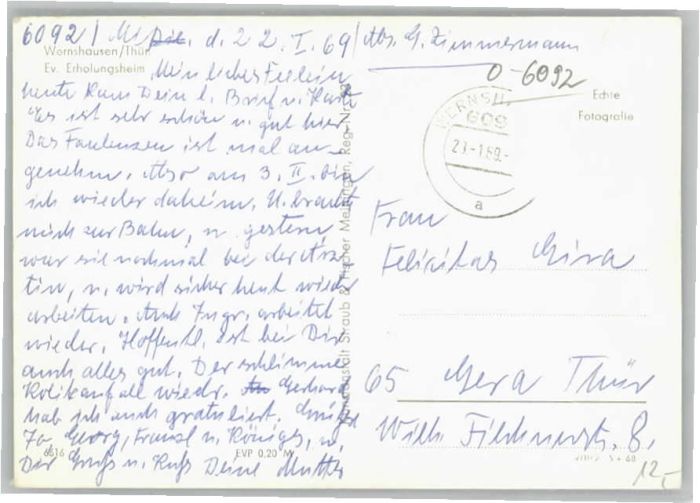 6092 / d. 22. I. 69 / Abs. G. Zimmermann
0-6092
Wernshausen/Thür.
Ev. Erholungsheim
Echte
Fotografie
Mein liebes Feelein
heute kam Dein l. Brief u. Karte
Es ist sehr schön u. gut hier.
Das Faulenzen ist mal an-
genehm. Also am 3. II. bin
ich wieder daheim. U. brachte
mich zur Bahn, u. gestern
war sie nochmal bei der Ärz-
tin, u. wird sicher heut wieder
arbeiten. Auch Ingr. arbeitet
wieder. Hoffentl. ist bei Dir
auch alles gut. Der schlimme
Kolikanfall wiedr. Gerhard
hab ich auch gratuliert.
Georg, Franzl u. Königs, u.
Dir Gruß u. Kuß Deine Mutter
WERNSH
609
23.-1.69.-
a
Frau
Felicitas Gira
65 Gera Thür
Wilh. Firchnerstr. 8.
Straub & Fischer Meiningen, Reg.-Nr.
6616
EVP 0,20 M
12,-